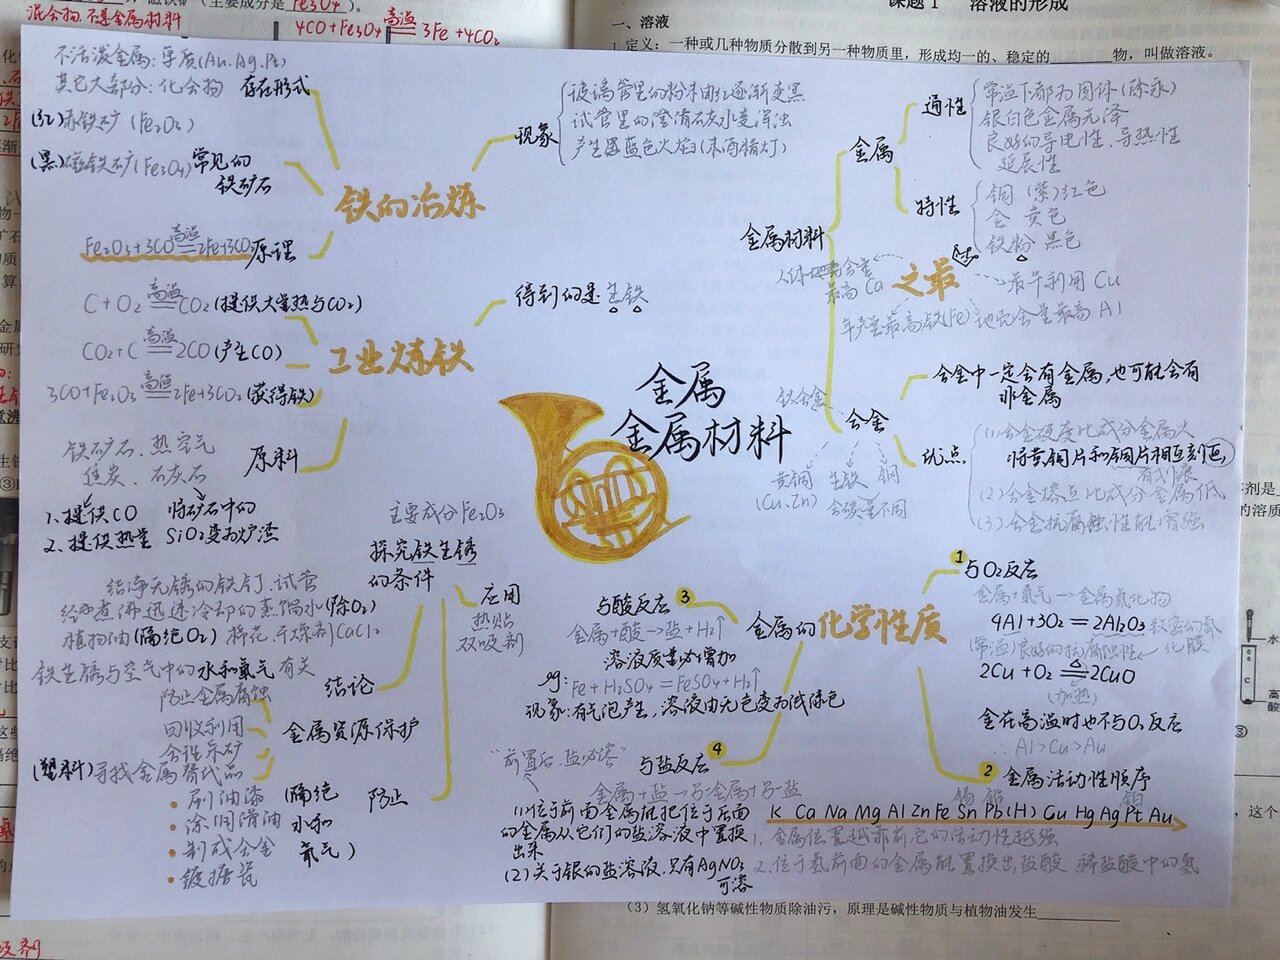 混合物,不是金属材料
4CO+Fe₃O₄ 高温 3Fe+4CO₂
课题1 溶液的形成
一、溶液
1.定义：一种或几种物质分散到另一种物质里，形成均一的、稳定的________物，叫做溶液。
不活泼金属:单质(Au.Ag.Pt)
其它大部分:化合物 存在形式
(红)赤铁矿 (Fe₂O₃)
(黑)磁铁矿(Fe₃O₄) 常见的
铁矿石
铁的冶炼
现象
玻璃管里的粉末由红逐渐变黑
试管里的澄清石灰水变浑浊
产生蓝色火焰(末端酒精灯)
Fe₂O₃+3CO 高温 2Fe+3CO₂ 原理
C+O₂ 高温 CO₂ (提供大量热与CO₂)
CO₂+C 高温 2CO (产生CO)
3CO+Fe₂O₃ 高温 2Fe+3CO₂ (获得铁)
工业炼铁
得到的是生铁
铁矿石、热空气
焦炭、石灰石
原料
1.提供CO
2.提供热量
将矿石中的
SiO₂变为炉渣
金属
金属材料
金属材料
金属
通性
常温下都为固体(除汞)
银白色金属光泽
良好的导电性、导热性
延展性
特性
铜 (紫)红色
金 黄色
铁粉 黑色
之最
人体 含量
最高 Ca
最早利用 Cu
年产量最高铁(Fe)
地壳含量最高 Al
合金
合金中一定含有金属,也可能含有
非金属
铁合金
黄铜
(Cu.Zn)
生铁 钢
含碳量不同
优点
(1)合金硬度比成分金属大
将黄铜片和铜片相互刻画,
有划痕
(2)合金熔点比成分金属低
(3)合金抗腐蚀性能增强
主要成分Fe₂O₃
探究铁生锈
的条件
应用
热贴
双吸剂
洁净无锈的铁钉、试管
经煮沸迅速冷却的蒸馏水(除O₂)
植物油(隔绝O₂) 棉花、干燥剂CaCl₂
铁生锈与空气中的水和氧气有关
结论
防止金属腐蚀
回收利用
合理采矿
(塑料)寻找金属替代品
金属资源保护
防止
• 刷油漆
• 涂润滑油
• 制成合金
• 镀搪瓷
(隔绝
水和
氧气)
金属的化学性质
1 与O₂反应
金属+氧气→金属氧化物
4Al+3O₂=2Al₂O₃ 致密的氧
化膜
(常温)良好的抗腐蚀性
2Cu+O₂ △ 2CuO
(加热)
金在高温时也不与O₂反应
∴Al>Cu>Au
2 金属活动性顺序
锡 铅 铂
K Ca Na Mg Al Zn Fe Sn Pb (H) Cu Hg Ag Pt Au
1.金属位置越靠前它的活动性越强
2.位于氢前面的金属能置换出盐酸、稀盐酸中的氢
与酸反应 3
金属+酸→盐+H₂↑
溶液质量增加
eg:Fe+H₂SO₄=FeSO₄+H₂↑
现象:有气泡产生,溶液由无色变为浅绿色
"前置后,盐必溶"
与盐反应 4
金属+盐→另一金属+另一盐
(1)位于前面金属能把位于后面
的金属从它们的盐溶液中置换
出来
(2)关于银的盐溶液,只有AgNO₃
可溶
（3）氢氧化钠等碱性物质除油污，原理是碱性物质与植物油发生________